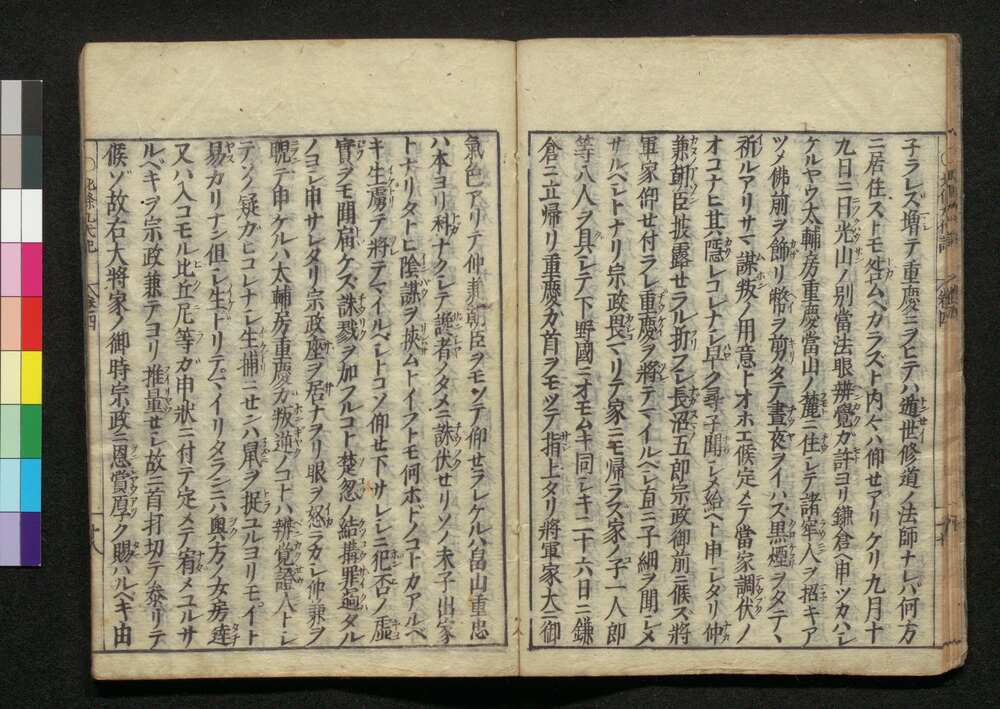 子ラレズ増テ重慶ニヲヒテハ遁世修道ノ法師ナレバ何方
ニ居住ストモ咎ムベカラズト内々ハ仰セアリケリ九月十
九日ニ日光山ノ別當法眼辨覺ガ許ヨリ鎌倉ヘ申ツカハシ
ケルヤウ太輔房重慶當山ノ麓ニ住シテ諸牢人ヲ招キア
ツメ佛前ヲ飾リ幣ヲ剪タテ晝夜ヲイハズ黒煙ヲタテヽ
祈ルアリサマ謀叛ノ用意トオホエ候定メテ當家調伏ノ
オコナヒ其隠レコレナシ早ク尋子聞シメ給ヘト申シタリ仲
兼朝臣披露セラル折フシ長沼五郎宗政御前ニ候ス將
軍家仰セ付ラレ重慶ヲ將テマイルベシ直ニ子細ヲ聞シメ
サルベシトナリ宗政畏マリテ家ニモ帰ラズ家ノ子一人郎
等八人ヲ具シテ下野國ニオモムキ同シキ二十六日ニ鎌
倉ニ立帰リ重慶ガ首ヲモツテ指上タリ將軍家大ニ御
氣色アリテ仲兼朝臣ヲモツテ仰セラレケルハ畠山重忠
ハ本ヨリ科ナクシテ讒者ノタメニ誅伏セリソノ末子出家
トナリタトヒ陰謀ヲ挾ムトイフトモ何ホドノコトカアルベ
キ生虜テ將テマイルベシトコソ仰セ下サレシニ犯否ノ虚
實ヲモ聞届ケズ誅戮ヲ加フルコト楚忽ノ結構罪過タル
ノヨシ申サレタリ宗政座ヲ居ナヲリ眼ヲ怒ラカシ仲兼ヲ
睨テ申ケルハ太輔房重慶ガ叛逆ノコトハ辨覺證人トシ
テソノ疑ガヒコレナシ生捕ニセンハ鼠ヲ捉ユルヨリモイト
易カリナン但シ生ドリテマイリタランニハ奥方ノ女房達
又ハ入コモル比丘尼等ガ申狀ニ付テ定メテ宥メユルサ
ルベキヲ宗政兼テヨリ推量セシ故ニ首打切テ参リテ
候ゾ故右大將家ノ御時宗政ニ恩賞厚ク賜ハルベキ由
○北條九代記
巻四
十八